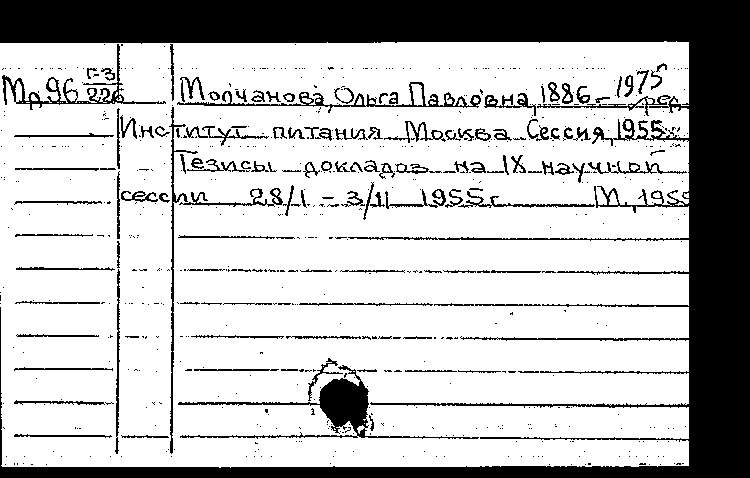 Мд96 Г-3/226 Молчанова, Ольга Павловна, 1886 – 1975 ред.
Институт питания Москва Сессия, 1955
Тезисы докладов на IX научной
сессии 28/I – 3/II 1955 г. М., 195